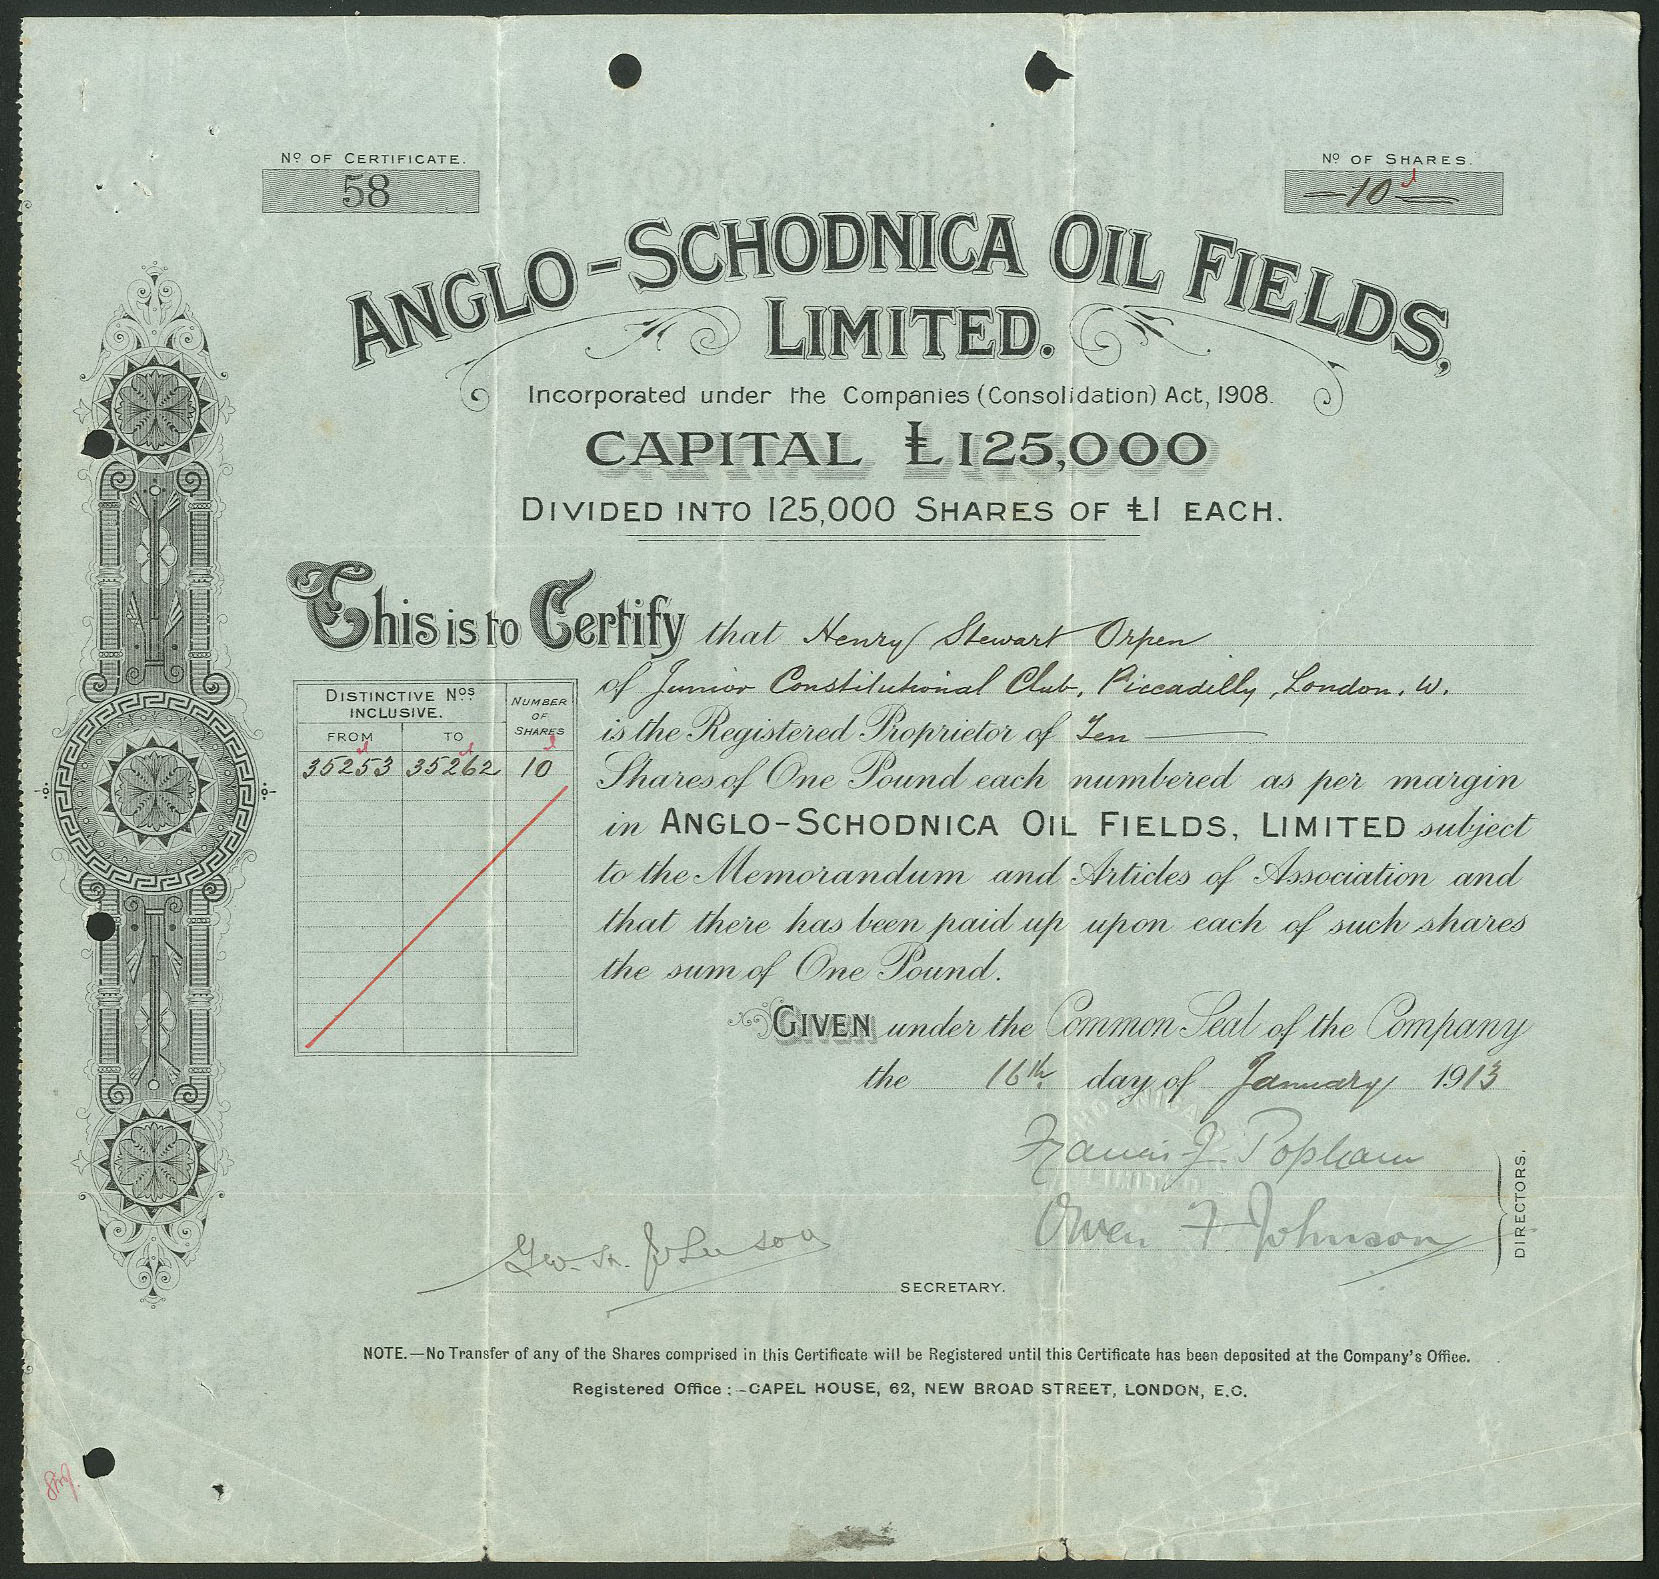 Nº OF CERTIFICATE.
58
Nº OF SHARES.
—10—
ANGLO-SCHODNICA OIL FIELDS,
LIMITED.
Incorporated under the Companies (Consolidation) Act, 1908.
CAPITAL £125,000
DIVIDED INTO 125,000 SHARES OF £1 EACH.
This is to Certify that Henry Stewart Orpen
of Junior Constitutional Club, Piccadilly, London. W.
is the Registered Proprietor of Ten
Shares of One Pound each numbered as per margin
in ANGLO-SCHODNICA OIL FIELDS, LIMITED subject
to the Memorandum and Articles of Association and
that there has been paid up upon each of such shares
the sum of One Pound.
DISTINCTIVE Nos INCLUSIVE.
NUMBER OF SHARES
FROM TO
35253 35262 10
GIVEN under the Common Seal of the Company
the 16th day of January 1913
Francis J. Popham
Owen F Johnson
DIRECTORS.
Johnson
SECRETARY.
NOTE.—No Transfer of any of the Shares comprised in this Certificate will be Registered until this Certificate has been deposited at the Company's Office.
Registered Office:-CAPEL HOUSE, 62, NEW BROAD STREET, LONDON, E.C.